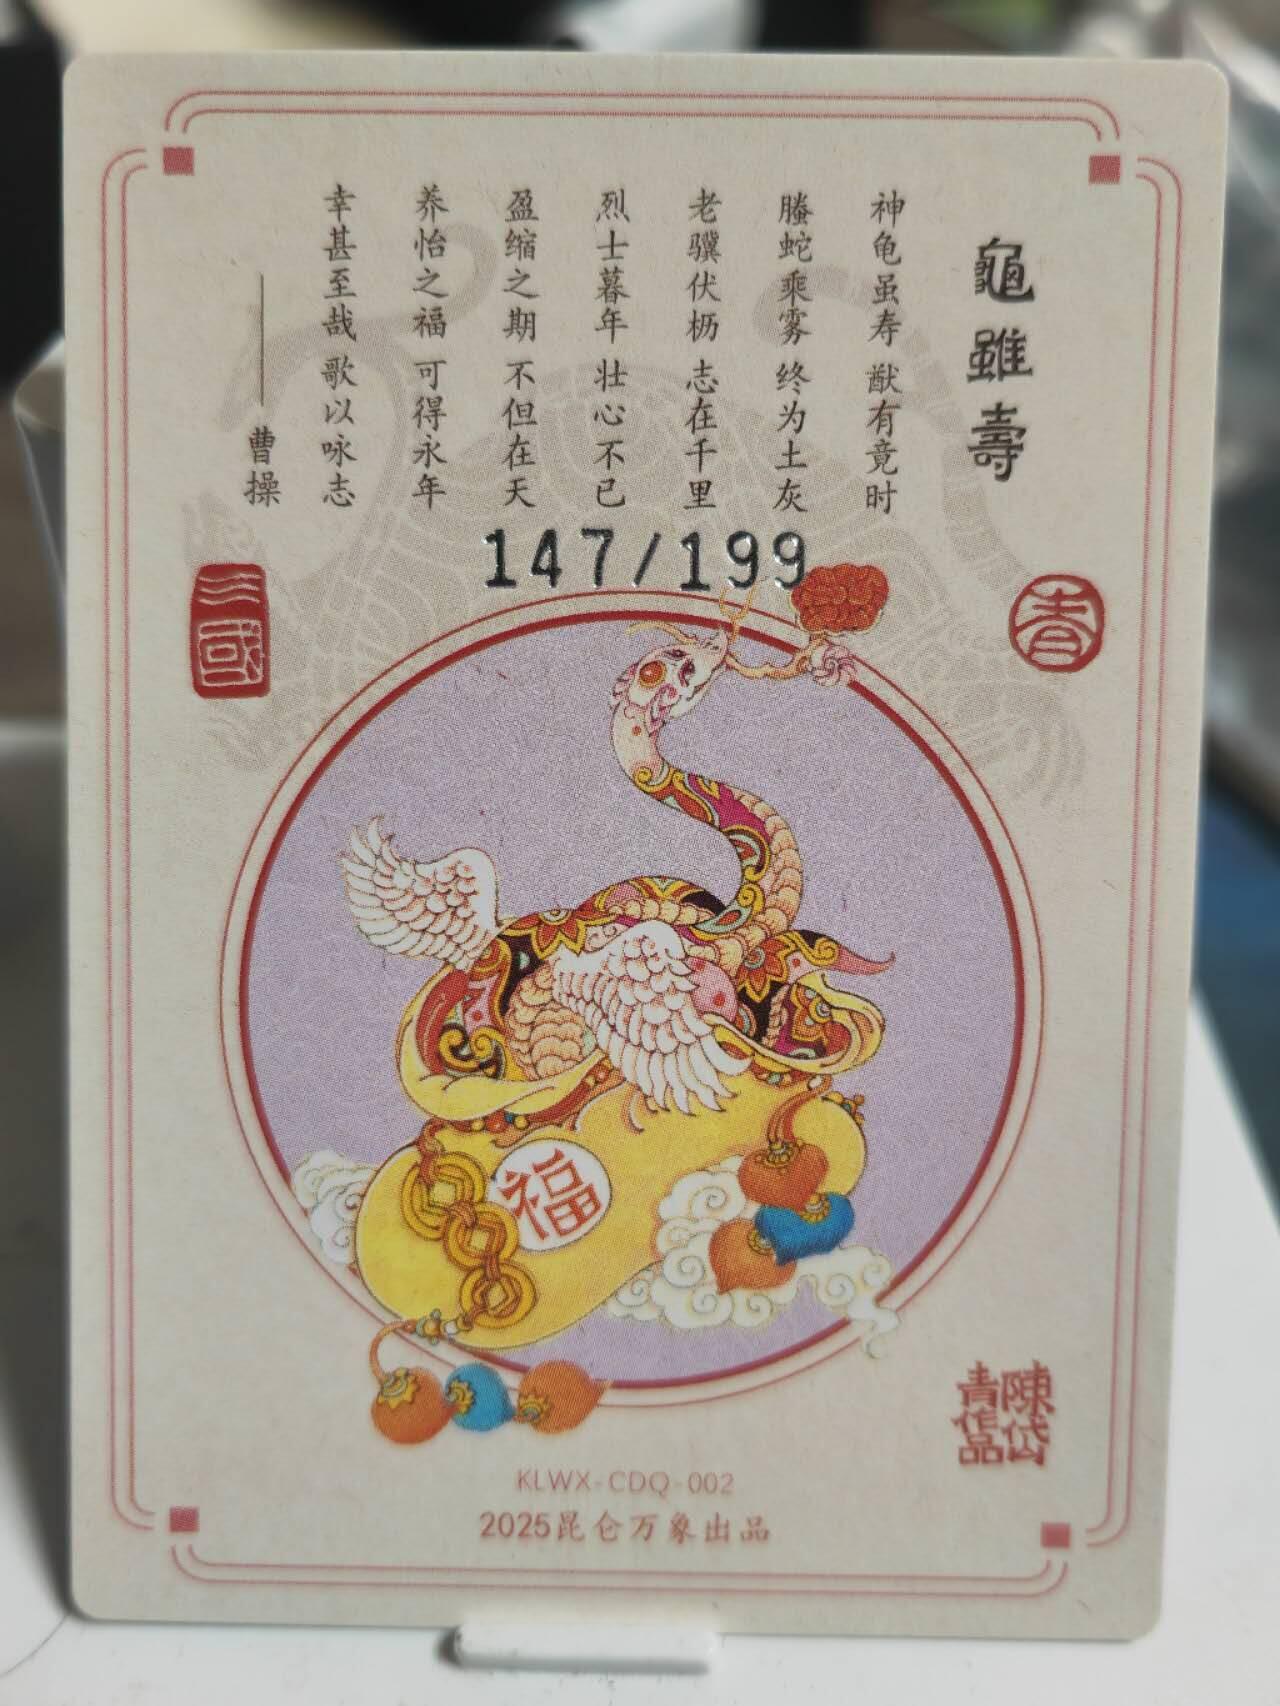 龜雖壽
神龟虽寿 猷有竟时
螣蛇乘雾 终为土灰
老骥伏枥 志在千里
烈士暮年 壮心不已
盈缩之期 不但在天
养怡之福 可得永年
幸甚至哉 歌以咏志
——曹操
147/199
三國
青
福
陳岱
青作品
KLWX-CDQ-002
2025昆仑万象出品